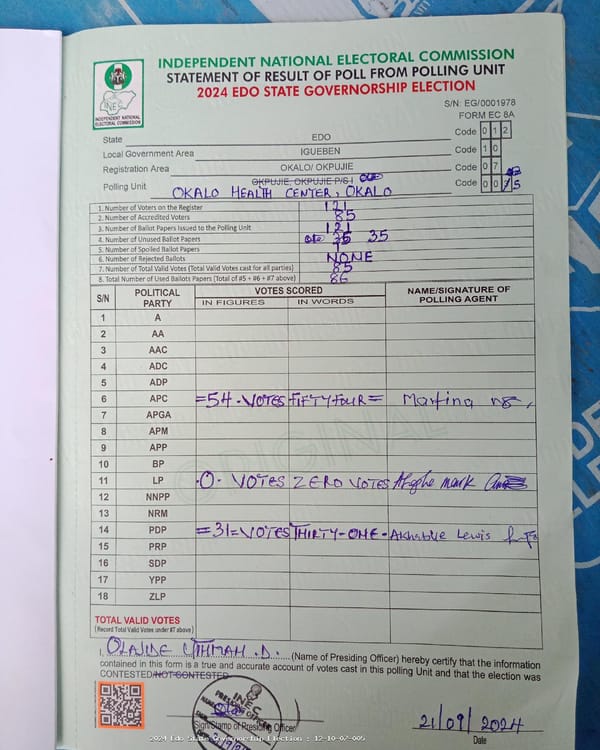 INDEPENDENT NATIONAL ELECTORAL COMMISSION
STATEMENT OF RESULT OF POLL FROM POLLING UNIT
2024 EDO STATE GOVERNORSHIP ELECTION
INEC
INDEPENDENT NATIONAL ELECTORAL COMMISSION
S/N: EG/0001978
FORM EC 8A
State EDO Code 0 1 2
Local Government Area IGUEBEN Code 1 0
Registration Area OKALO/ OKPUJIE Code 0 7
Polling Unit OKPUJIE, OKPUJIE P/S I Code 0 0 5
OKALO HEALTH CENTER, OKALO
1. Number of Voters on the Register 121
2. Number of Accredited Voters 85
3. Number of Ballot Papers Issued to the Polling Unit 121
4. Number of Unused Ballot Papers 35 35
5. Number of Spoiled Ballot Papers 1
6. Number of Rejected Ballots NONE
7. Number of Total Valid Votes (Total Valid Votes cast for all parties) 85
8. Total Number of Used Ballots Papers (Total of #5 + #6 + #7 above) 86
S/N POLITICAL PARTY VOTES SCORED NAME/SIGNATURE OF POLLING AGENT
IN FIGURES IN WORDS
1 A
2 AA
3 AAC
4 ADC
5 ADP
6 APC =54-VOTES FIFTY FOUR=
7 APGA
8 APM
9 APP
10 BP
11 LP .0. VOTES ZERO VOTES mark
12 NNPP
13 NRM
14 PDP =31=VOTES THIRTY-ONE- Lewis
15 PRP
16 SDP
17 YPP
18 ZLP
ORIGINAL
TOTAL VALID VOTES
(Record Total Valid Votes under #7 above)
I, OLAJIDE UTHMAN .D. (Name of Presiding Officer) hereby certify that the information
contained in this form is a true and accurate account of votes cast in this polling Unit and that the election was
CONTESTED/NOT CONTESTED
INEC
PRESIDING OFFICER
Sign/Stamp of Presiding Officer
21/09/2024
Date
2024 Edo State Governorship Election : 12-10-07-005